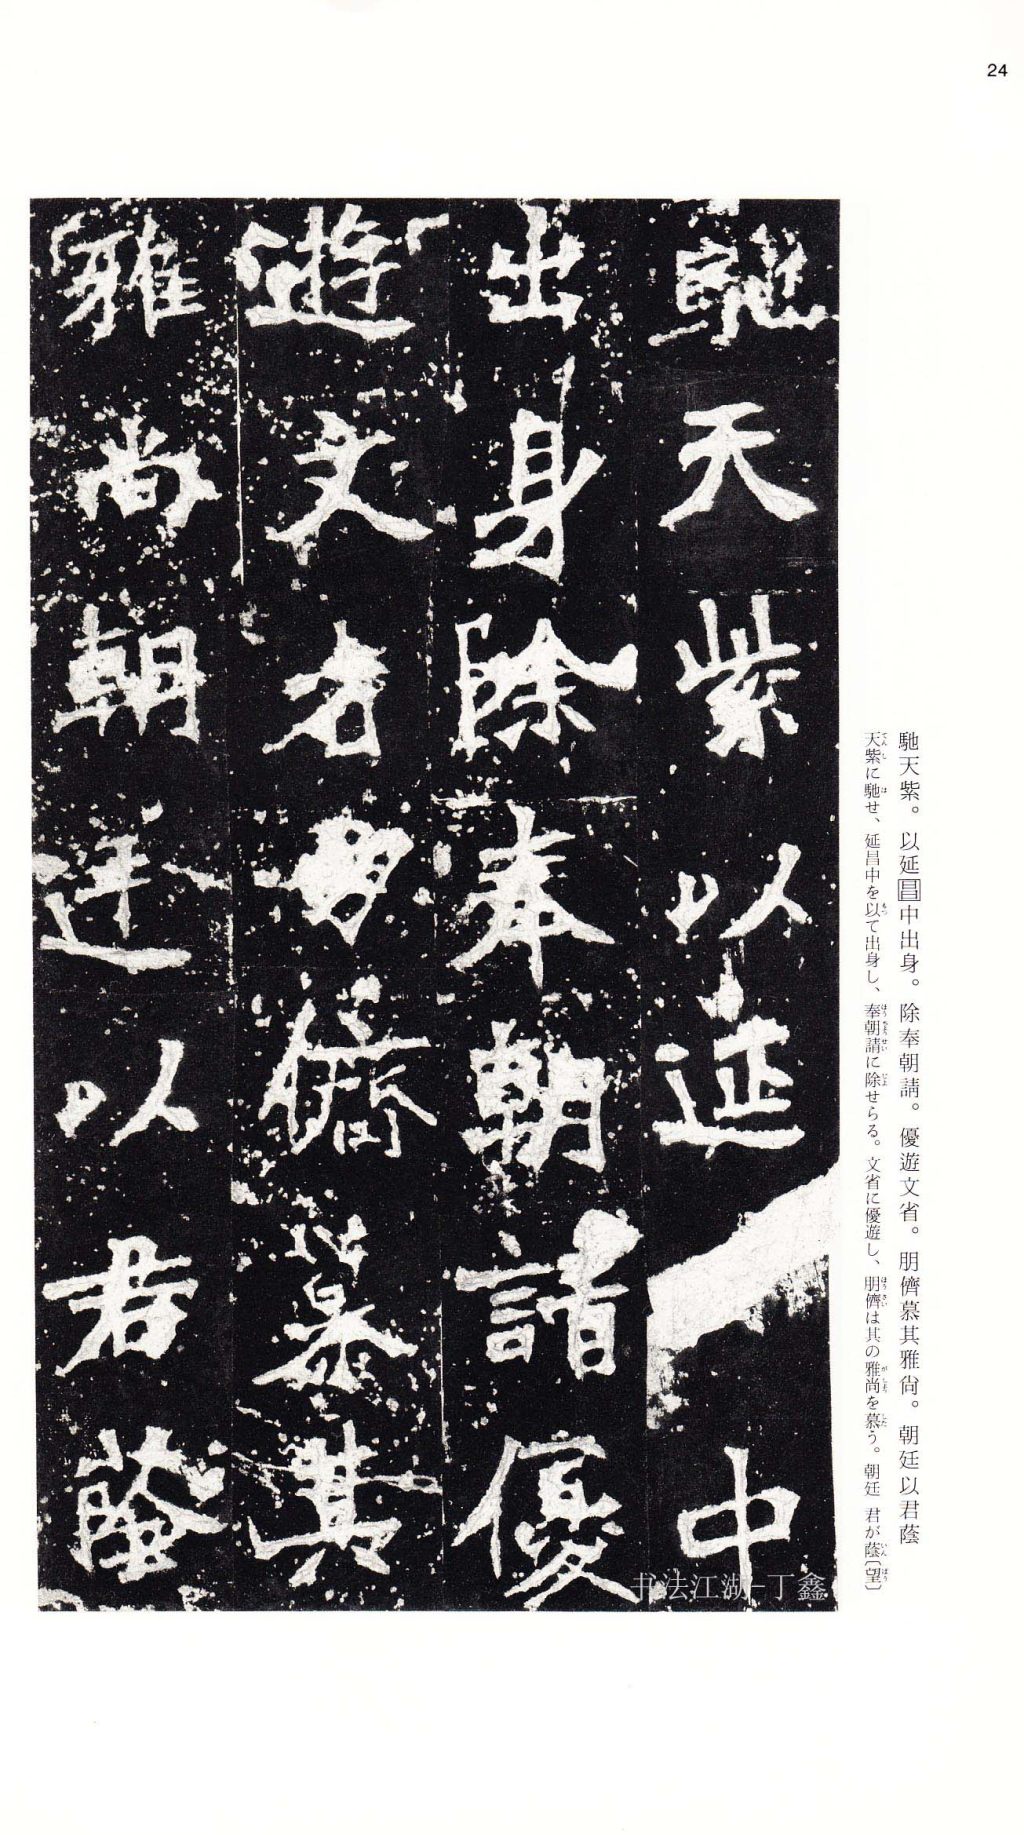 24
馳天紫。以延昌中出身。除奉朝請。優遊文省。朋儕慕其雅尙。朝廷以君蔭
天紫に馳せ、延昌中を以て出身し、奉朝請に除せらる。文省に優遊し、朋儕は其の雅尚を慕う。朝廷 君が蔭〔望〕
馳天紫以延中
出身除奉朝請優
遊文省朋儕慕其
雅尚朝廷以君蔭
书法江湖-丁鑫